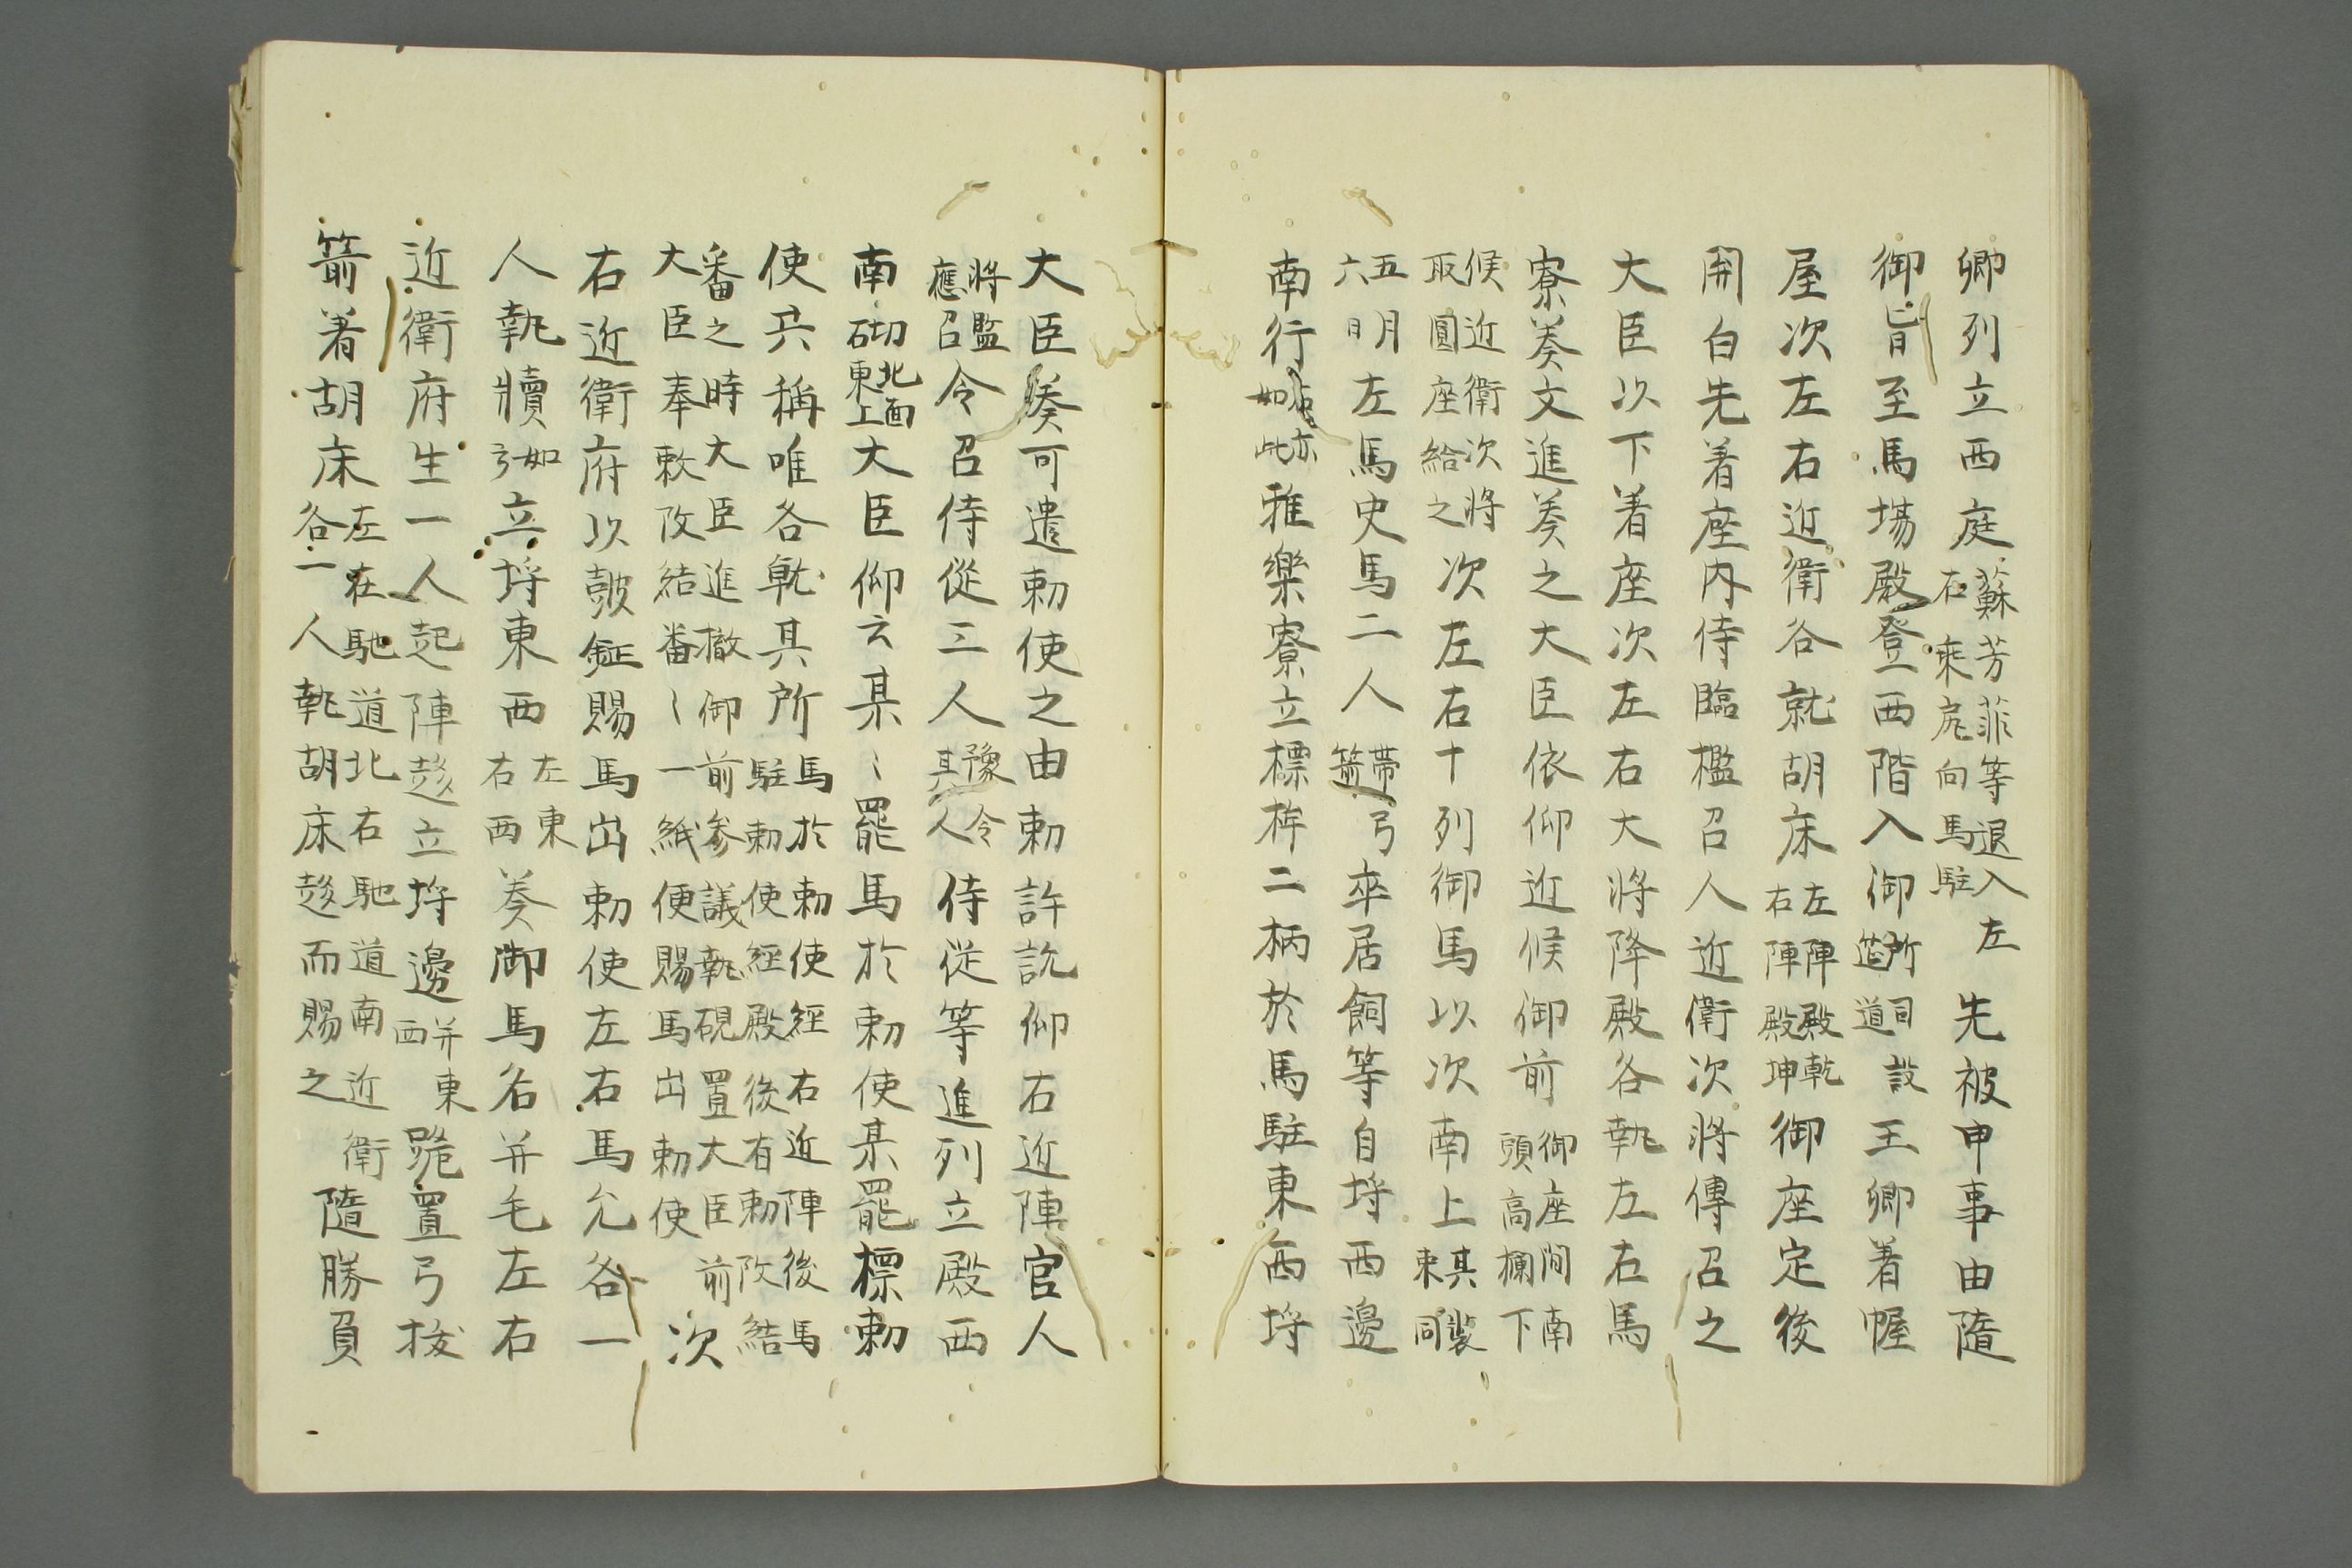 卿列立西庭蘇芳菲等退入左右乗尻向馬駐先被申事由隨
御旨至馬場殿登西階入御所司設筵道王卿着幄
屋次左右近衛各就胡床左陣殿乾右陣殿坤御座定後
開白先着座内侍臨檻召人近衛次将傳召之
大臣以下着座次左右大将降殿各執左右馬
寮奏文進奏之大臣依仰近候御前御座間南頭高欄下
候近衛次将取圓座給之次左右十列御馬以次南上其裝束同
五月六日明左馬史馬二人帶弓箭卒居飼等自埒西邊
南行亦如此雅樂寮立標桙二柄於馬駐東西埒
大臣奏可遣勅使之由勅許訖仰右近陣官人
将監應召令召侍從三人豫令其人侍從等進列立殿西
南砌北面東上大臣仰云某〻罷馬於勅使某罷標勅
使共稱唯各就其所馬於勅使經右近陣後馬駐勅使經殿後有勅改結
番之時大臣進撤御前參議執硯置大臣前大臣奉敕改結番〻一紙便賜馬出勅使次
右近衛府以皷鉦賜馬出勅使左右馬允各一
人執牘如弓立埒東西左東右西奏御馬名并毛左右
近衛府生一人起陣趍立埒邊并東西跪置弓拔
箭着胡床左在馳道北右馳道南近衛各一人執胡床趍而賜之隨勝負